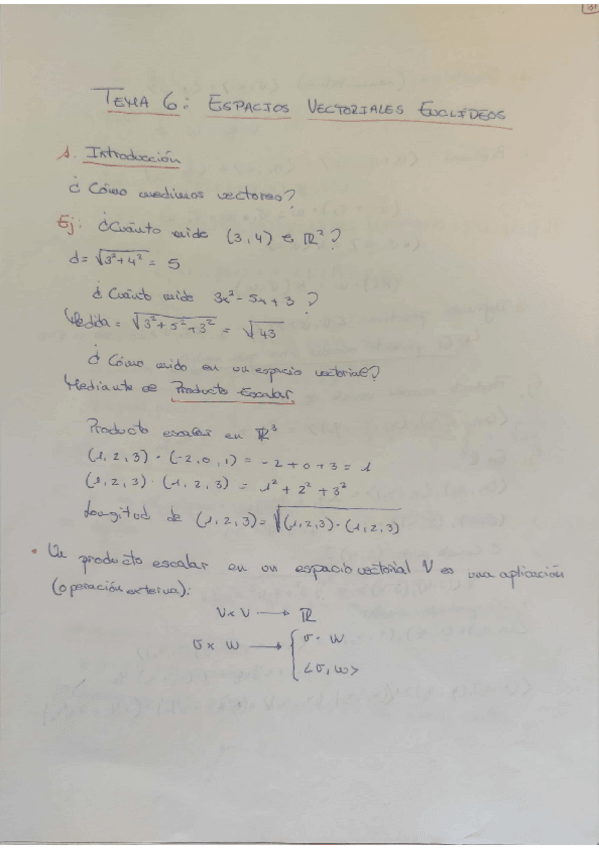 TEMA 6: ESPACIOS VECTORIALES EUCLÍDEOS
1. Introducción
¿Cómo medimos vectores?
Ej: ¿Cuánto mide (3,4) ∈ ℝ²?
d = √3²+4² = 5
¿Cuánto mide 3x²-5x+3?
Medida = √3²+5²+3² = √43
¿Cómo mido en un espacio vectorial?
Mediante el Producto Escalar
Producto escalar en ℝ³
(1,2,3)·(-2,0,1) = -2+0+3 = 1
(1,2,3)·(1,2,3) = 1²+2²+3²
Longitud de (1,2,3) = √(1,2,3)·(1,2,3)
• Un producto escalar en un espacio vectorial V es una aplicación
(operación externa):
V×V → ℝ
v×w → { v·w
<v,w>